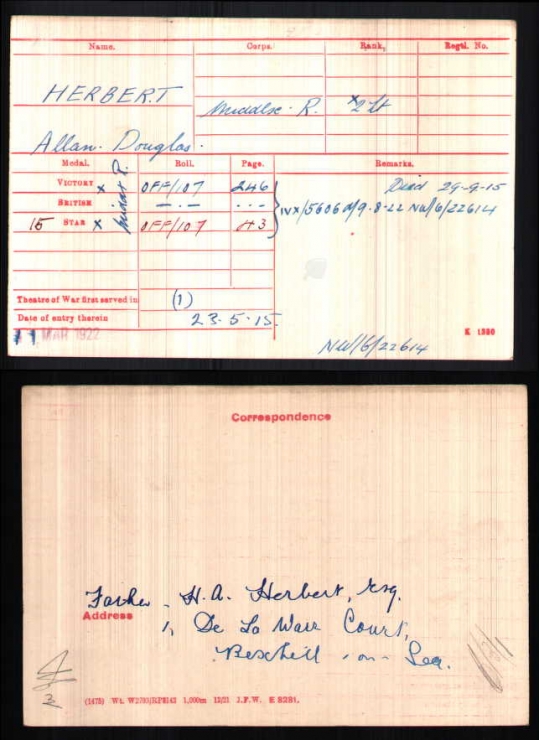 Name. Corps. Rank. Regtl. No.
HERBERT
Middlsx. R. x2 Lt
Allan. Douglas.
Medal. Roll. Page. Remarks.
VICTORY x OFF/107 246 Died 29-9-15
BRITISH —.— ... IVX/5606 d/9.8.22 NW/6/22614
15 STAR x OFF/107 43
Theatre of War first served in (1)
Date of entry therein 23.5.15.
MAR 1922 K 1380
NW/6/22614
Correspondence
Father. H.A. Herbert, Esq.
Address 1, De La Warr Court,
Bexhill-on-Sea.
1,000m 12/21 J.F.W. E 8281.